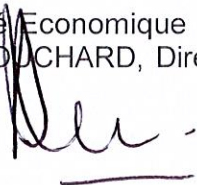 Economique
OUCHARD, Dire